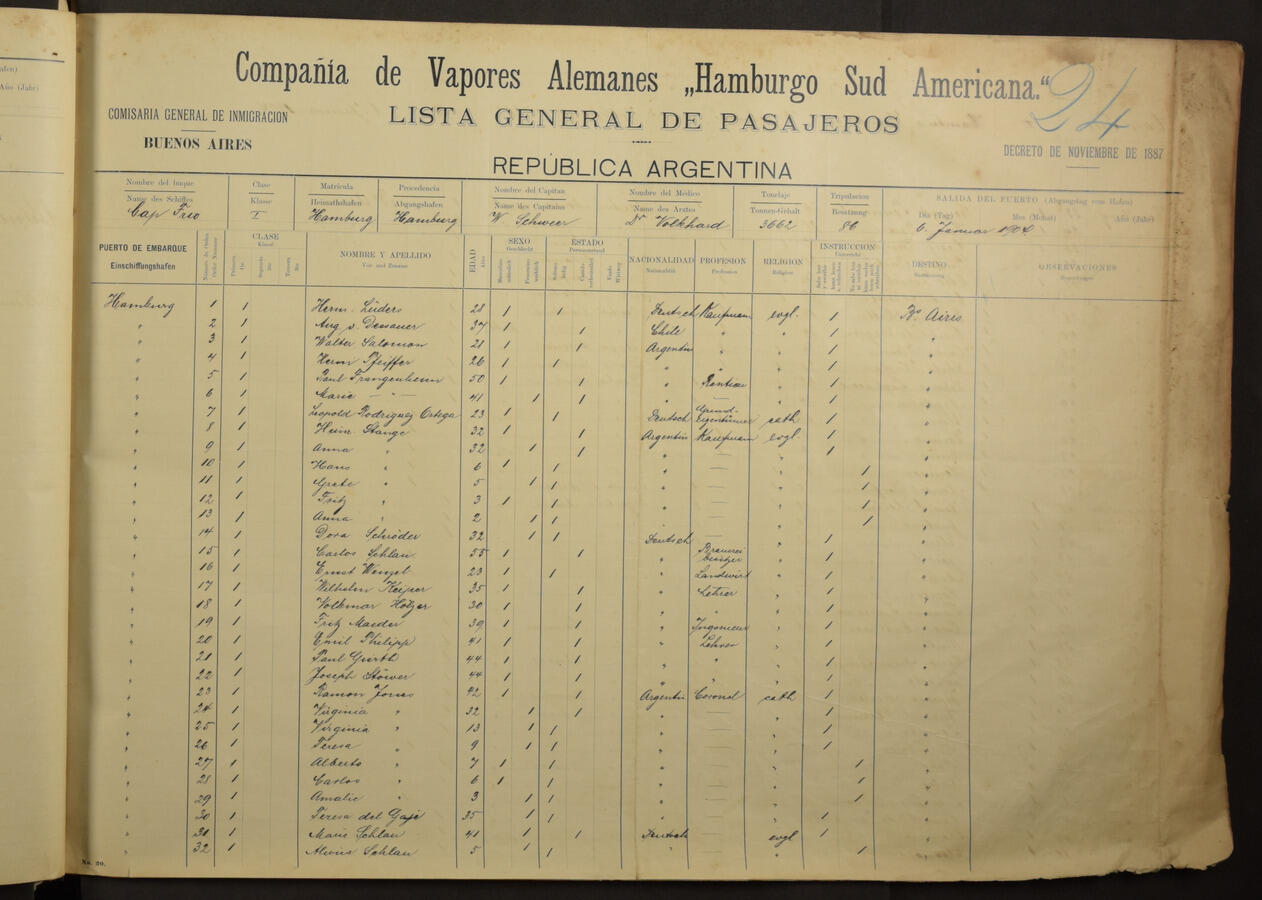 afen)
Año (Jahr)
Compañia de Vapores Alemanes „Hamburgo Sud Americana.“
24
COMISARIA GENERAL DE INMIGRACION
LISTA GENERAL DE PASAJEROS
BUENOS AIRES
DECRETO DE NOVIEMBRE DE 1887
REPÚBLICA ARGENTINA
Nombre del buque Clase Matrícula Procedencia Nombre del Capitan Nombre del Médico Tonelaje Tripulacion SALIDA DEL PUERTO (Abgangstag vom Hafen)
Name des Schiffes Klasse Heimathshafen Abgangshafen Name des Capitains Name des Arztes Tonnen-Gehalt Besatzung Dia (Tag) Mes (Monat) Año (Jahr)
Cap Frio I Hamburg Hamburg W. Schweer Dr Volkhard 3662 86 6. Januar 1904
PUERTO DE EMBARQUE CLASE NOMBRE Y APELLIDO EDAD SEXO ESTADO NACIONALIDAD PROFESION RELIGION INSTRUCCION DESTINO OBSERVACIONES
Einschiffungshafen Klasse Vor- und Zuname Geschlecht Nationalität Profession Religion
Hamburg 1 1 Herm. Lüders 28 1 1 Deutsch Kaufmann evgl. 1 Bs Aires
" 2 1 Aug. v. Dessauer 37 1 1 Chile " " 1 "
" 3 1 Walter Salomon 21 1 1 Argentin " " 1 "
" 4 1 Herm Pfeiffer 26 1 1 " " " 1 "
" 5 1 Paul Frangenheim 50 1 1 " Rentier " 1 "
" 6 1 Marie — " — 41 1 1 " — " 1 "
" 7 1 Leopold Rodriguez Ortega 23 1 1 Deutsch Grund-Eigentümer cath 1 "
" 8 1 Heinr. Stange 32 1 1 Argentin Kaufmann evgl. 1 "
" 9 1 Anna " 32 1 1 " — " 1 "
" 10 1 Hans " 6 1 1 " — " 1 "
" 11 1 Grete " 5 1 1 " — " 1 "
" 12 1 Fritz " 3 1 1 " — " 1 "
" 13 1 Anna " 2 1 1 " — " 1 "
" 14 1 Dora Schröder 32 1 1 Deutsch " 1 "
" 15 1 Carlos Schlau 55 1 1 " Brauereibesitzer " 1 "
" 16 1 Ernst Wenzel 23 1 1 " Landwirt " 1 "
" 17 1 Wilhelm Keiper 35 1 1 " Lehrer " 1 "
" 18 1 Volkmar Hölzer 30 1 1 " " " 1 "
" 19 1 Fritz Maeder 39 1 1 " Ingenieur " 1 "
" 20 1 Emil Philipp 41 1 1 " Lehrer " 1 "
" 21 1 Paul Gurth 44 1 1 " " " 1 "
" 22 1 Joseph Stöwer 44 1 1 " " " 1 "
" 23 1 Ramon Jones 42 1 1 Argentin Coronel cath 1 "
" 24 1 Virginia " 32 1 1 " — " 1 "
" 25 1 Virginia " 13 1 1 " — " 1 "
" 26 1 Teresa " 9 1 1 " — " 1 "
" 27 1 Alberto " 7 1 1 " — " 1 "
" 28 1 Carlos " 6 1 1 " — " 1 "
" 29 1 Amalie " 3 1 1 " — " 1 "
" 30 1 Teresa del 35 1 1 " " 1 "
" 31 1 Marie Schlau 41 1 1 Deutsch evgl 1 "
" 32 1 Schlau 5 1 1 " " 1 "
No. 20.